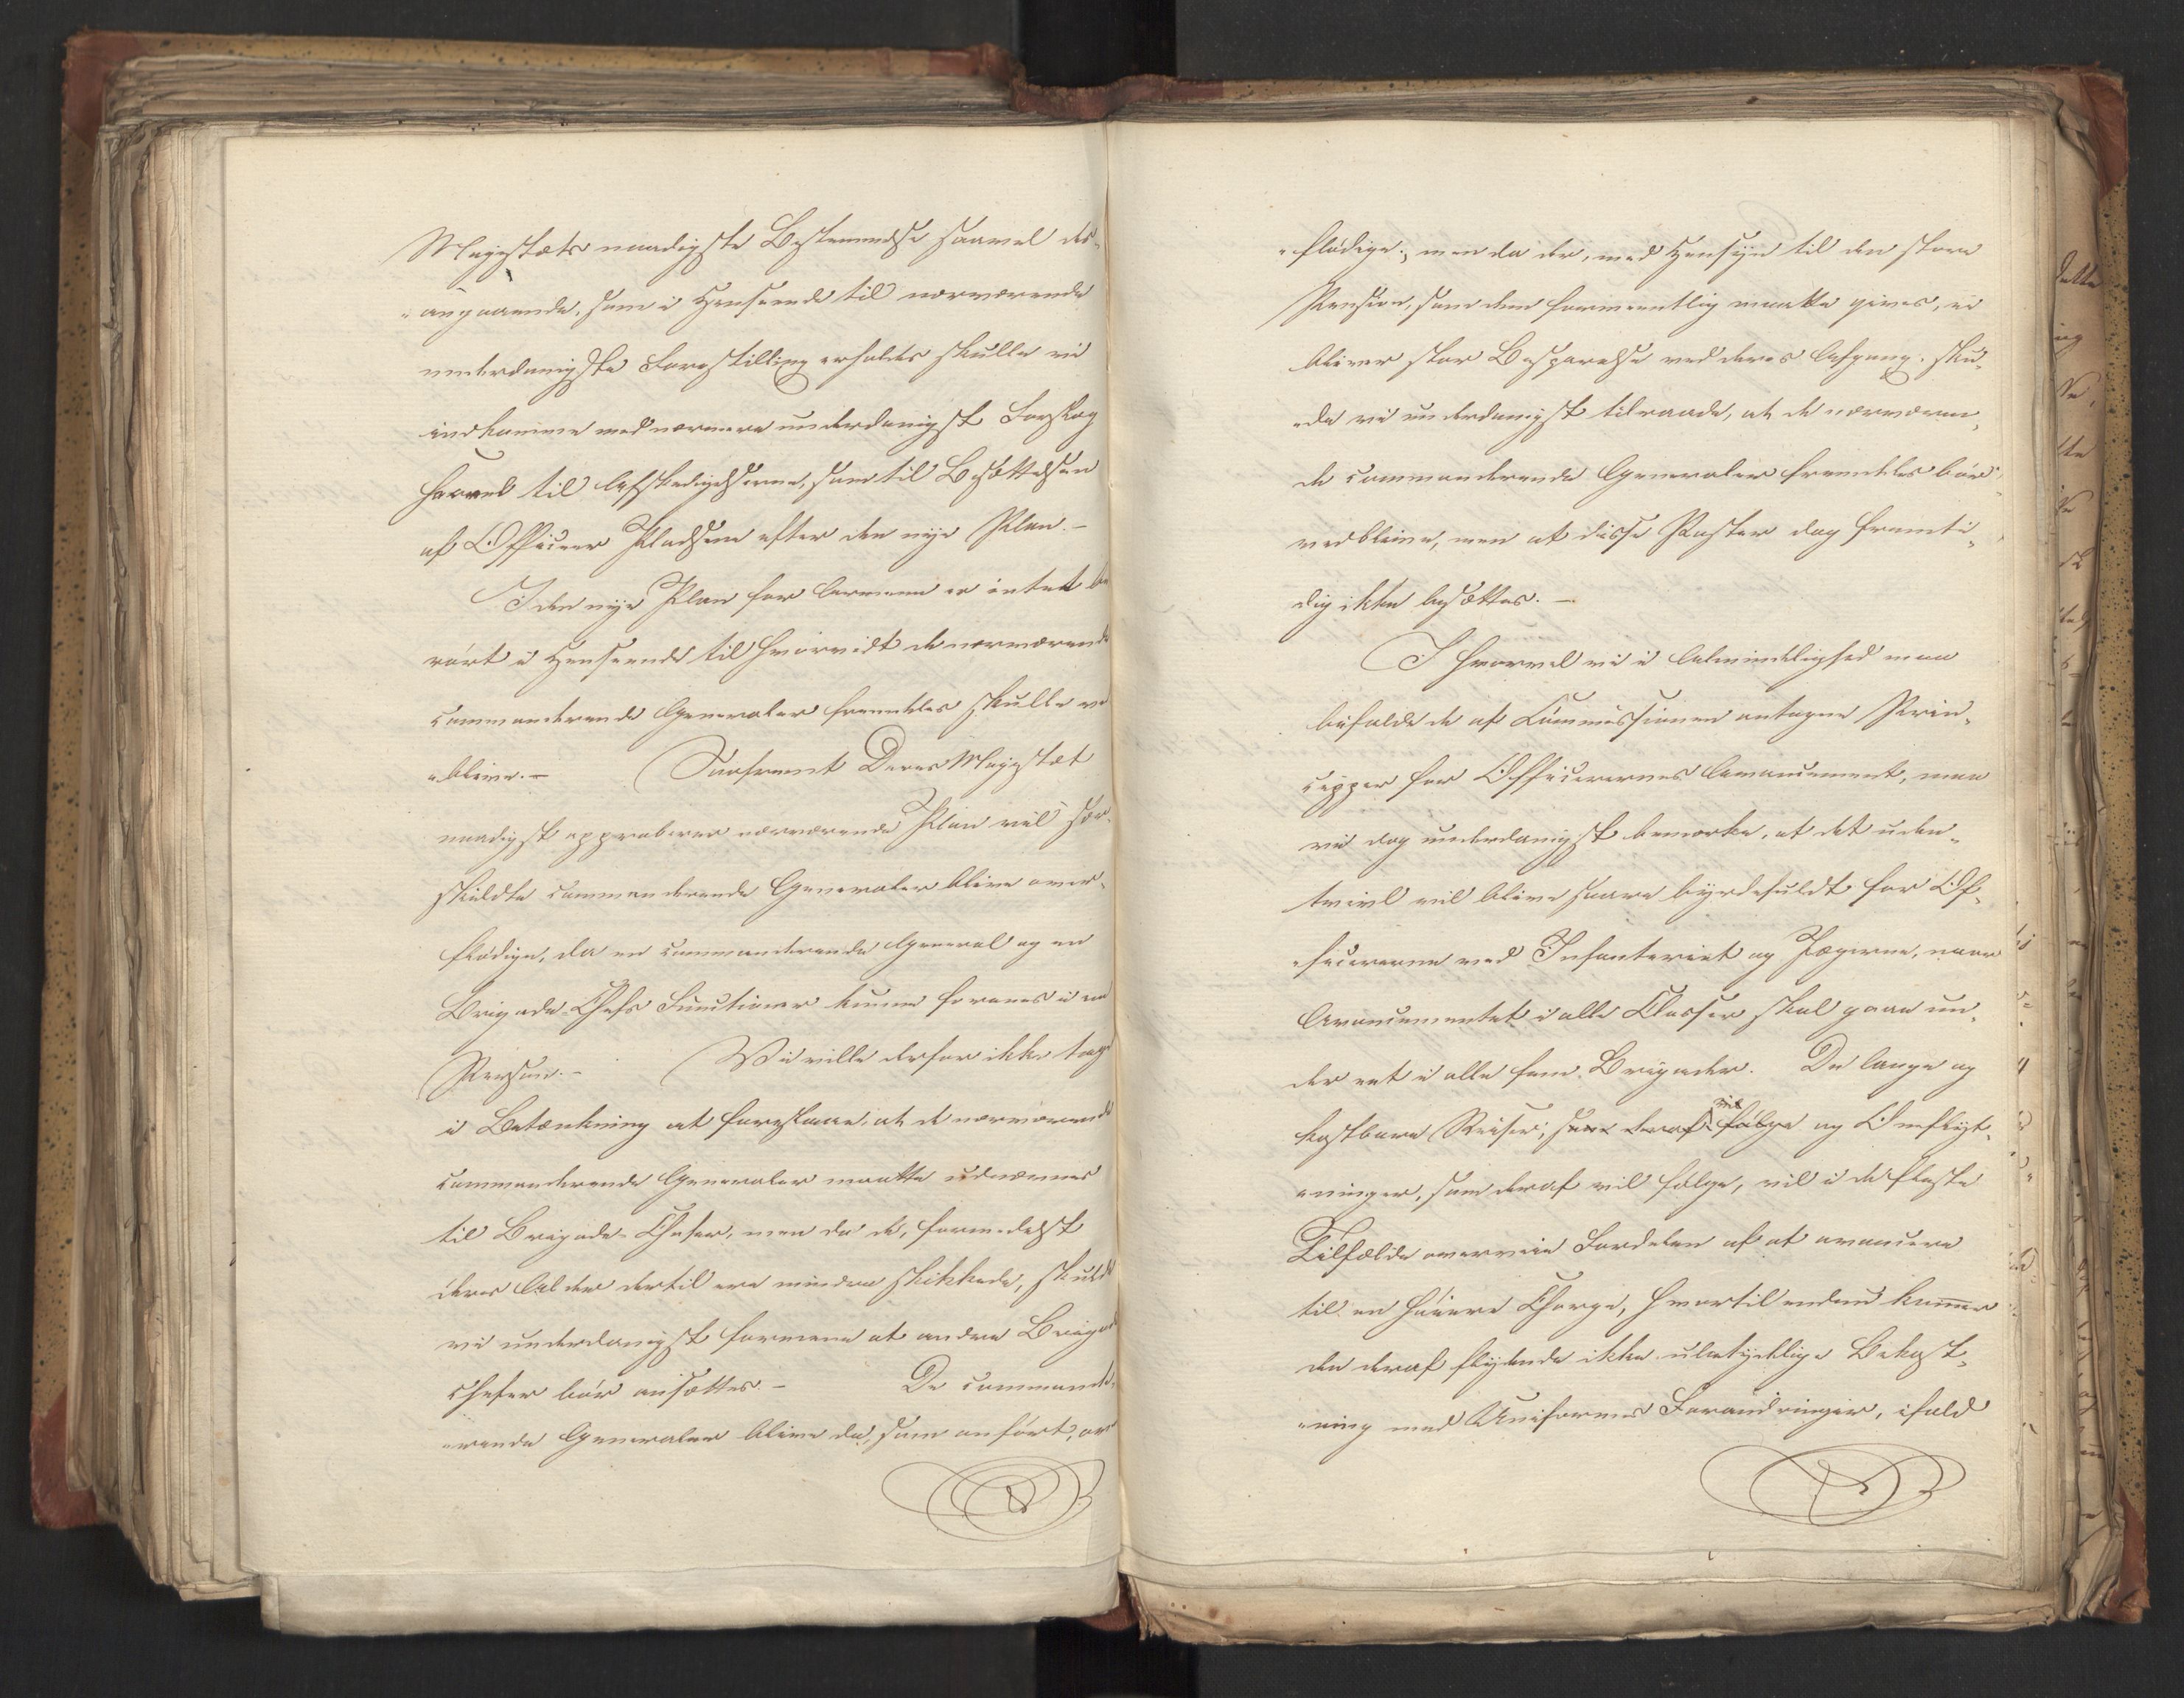 Majestæts naadigste Bestemmelse saavel des-
"angaaende, som i Henseende til nærværende
underdanigste Forestilling erholdes skulle vi
indkomme med nærmere underdanigst Forslag
saavel til Afskedigelserne, som til Besættelsen
af Officeer Pladsene efter den nye Plan. -
I den nye Plan for Armeen er intet be
rørt i Henseende til hvorvidt de nærværende
commanderende Generaler fremdeles skulle ved
"blive. - Saafremt Deres Majestæt
naadigst approberer nærværende Plan vil sær-
skildte commanderende Generaler blive over-
flødige, da en commanderende General og en
Brigade-Chefs Functioner kunne forenes i een
Person. - Vi ville derfor ikke tage
i Betænkning at foreslaae, at de nærværende
commanderende Generaler maatte udnævnes
til Brigade-Chefer, men da de, formedelst
deres Alder dertil ere mindre skikkede, skulde
vi underdanigst formene at andre Brigade
Chefer bør ansættes. - De commande-
"rende Generaler blive da, som anført, over
"flødige; men da der, med Hensyn til den store
Pension, som dem formeentlig maatte gives, ei
bliver stor Besparelse ved deres Afgang, skul-
"de vi underdanigst tilraade, at de nærværen-
de commanderende Generaler fremdeles bør
vedblive, men at disse Poster dog fremti-
dig ikke besættes. -
I hvorvel vi i Almindelighed maa
bifalde de af Commissionen antagne Prin-
cipper for Officerernes Avancement, maa
vi dog underdanigst bemærke, at det uden-
tvivl vil blive saare byrdefuldt for Of-
"ficererne ved Infanteriet og Jægerne, naar
Avancementet i alle Classer skal gaae un-
der eet i alle fem Brigader. De lange og
kostbare Reiser, som deraf vil følge og Omflyt-
"ninger, som deraf vil følge, vil i de fleste
Tilfælde overveie Fordelen af at avancere
til en høiere Charge, hvortil endnu kommer
den deraf flydende ikke ubetydelige Bekost-
"ning med Uniformes Forandringer, ifald